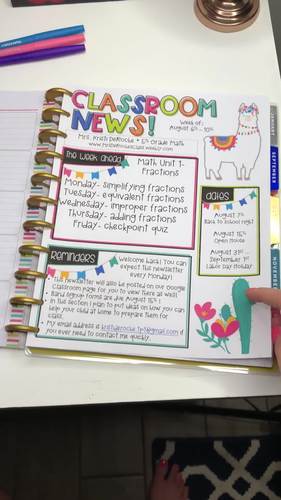 CLASSROOM
NEWS!
Week of:
August 6th - 10th
Mrs. Kristi DeRoche * 5th Grade Math
The Week Ahead
Math Unit 1-
Fractions
Monday- simplifying fractions
Tuesday- equivalent fractions
Wednesday- improper fractions
Thursday- adding fractions
Friday- checkpoint quiz
Dates
August 7th
Back to school night
August 15th
Open House
August 31st -
September 1st
Labor Day Holiday
Reminders
Welcome back! You can
expect the newsletter
every Monday!
The newsletter will also be posted on our Google
Classroom page for you to view there as well!
Band signup forms are due August 15th!
In this section I plan to put ideas on how you can
help your child at home to prepare them for
My email address is if
you ever need to contact me quickly.
JANUARY
SEPTEMBER
NOVEMBER